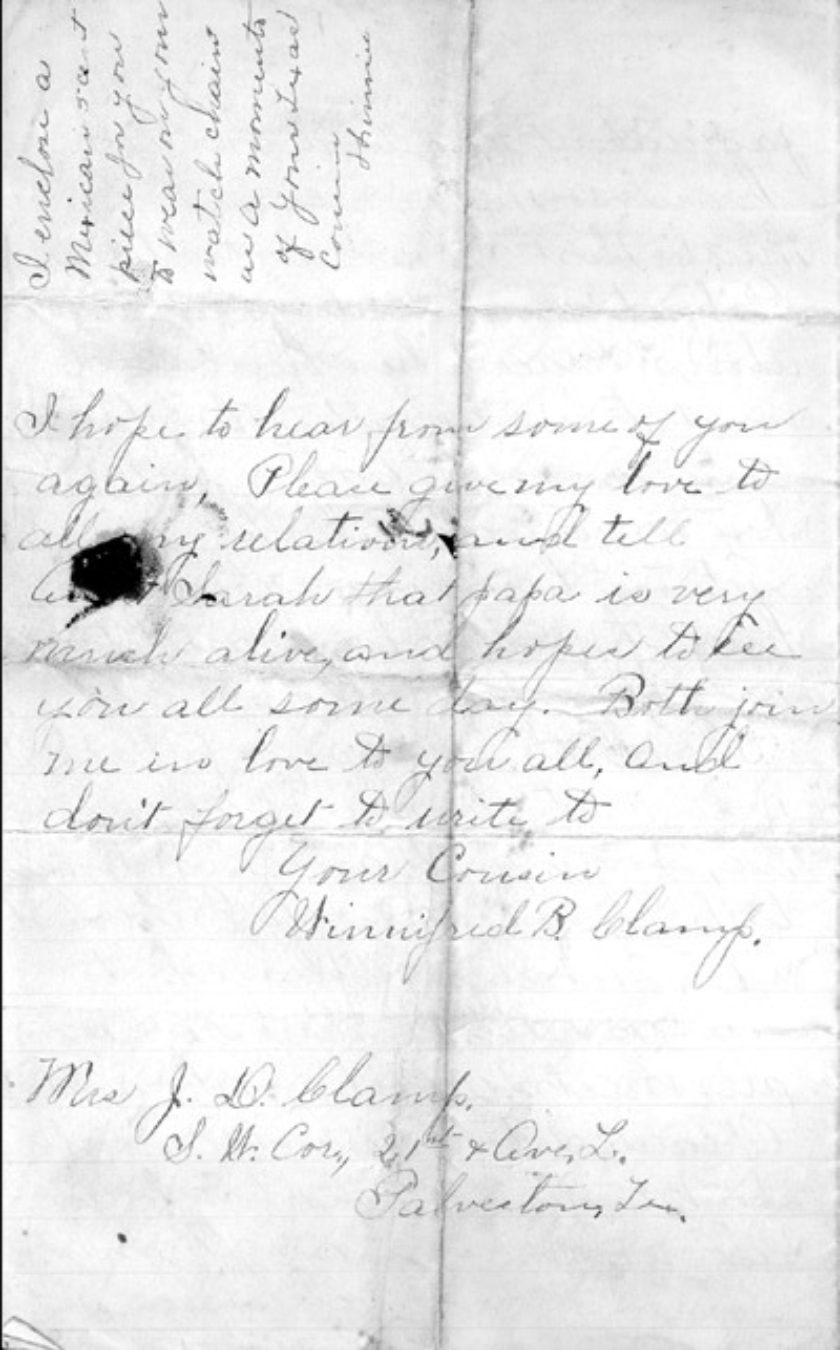 I enclose a
Mexican cent
piece for you
to wear on your
watch chain
as a momento
of your Texas
Cousin
Winnie
I hope to hear from some of you
again, Please give my love to
all my relations, and tell
Sarah that papa is very
much alive, and hopes to see
you all some day. Both join
me in love to you all, and
don't forget to write to
Your Cousin
Winnifred B. Clamp.
Mrs J. D. Clamp.
S. W. Cor., 21st & Ave. L.
Galveston, Tex.